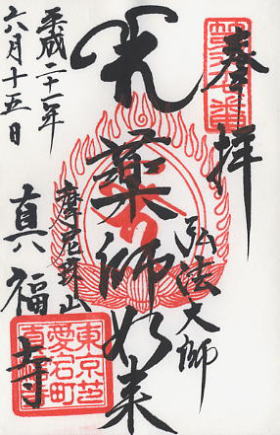 奉拝
弘法大師
薬師如来
摩尼珠山
真福寺
平成二十一年
六月十五日
東京芝
愛宕町
真福寺